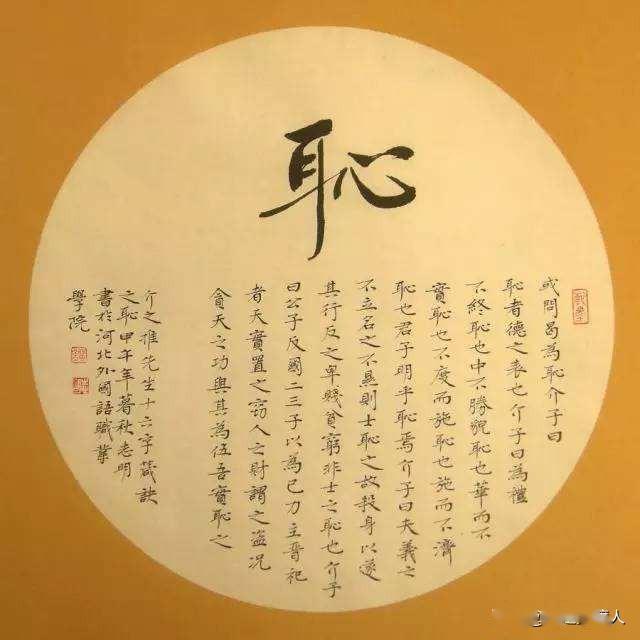 恥
或問曷為恥介子曰
恥者德之表也介子曰為禮
不終恥也中不勝貌恥也華而不
實恥也不度而施恥也施而不濟
恥也君子明乎恥焉介子曰夫義之
不立名之不顯則士恥之故殺身以遂
其行反之卑賤貧窮非士之恥也介子
曰公子反國二三子以為已力主晉祀
者天實置之竊人之財謂之盜況
貪天之功與其為伍吾實恥之
介之推先生十六字箴訣
之恥甲午年暮秋老明
書於河北外國語職業
學院